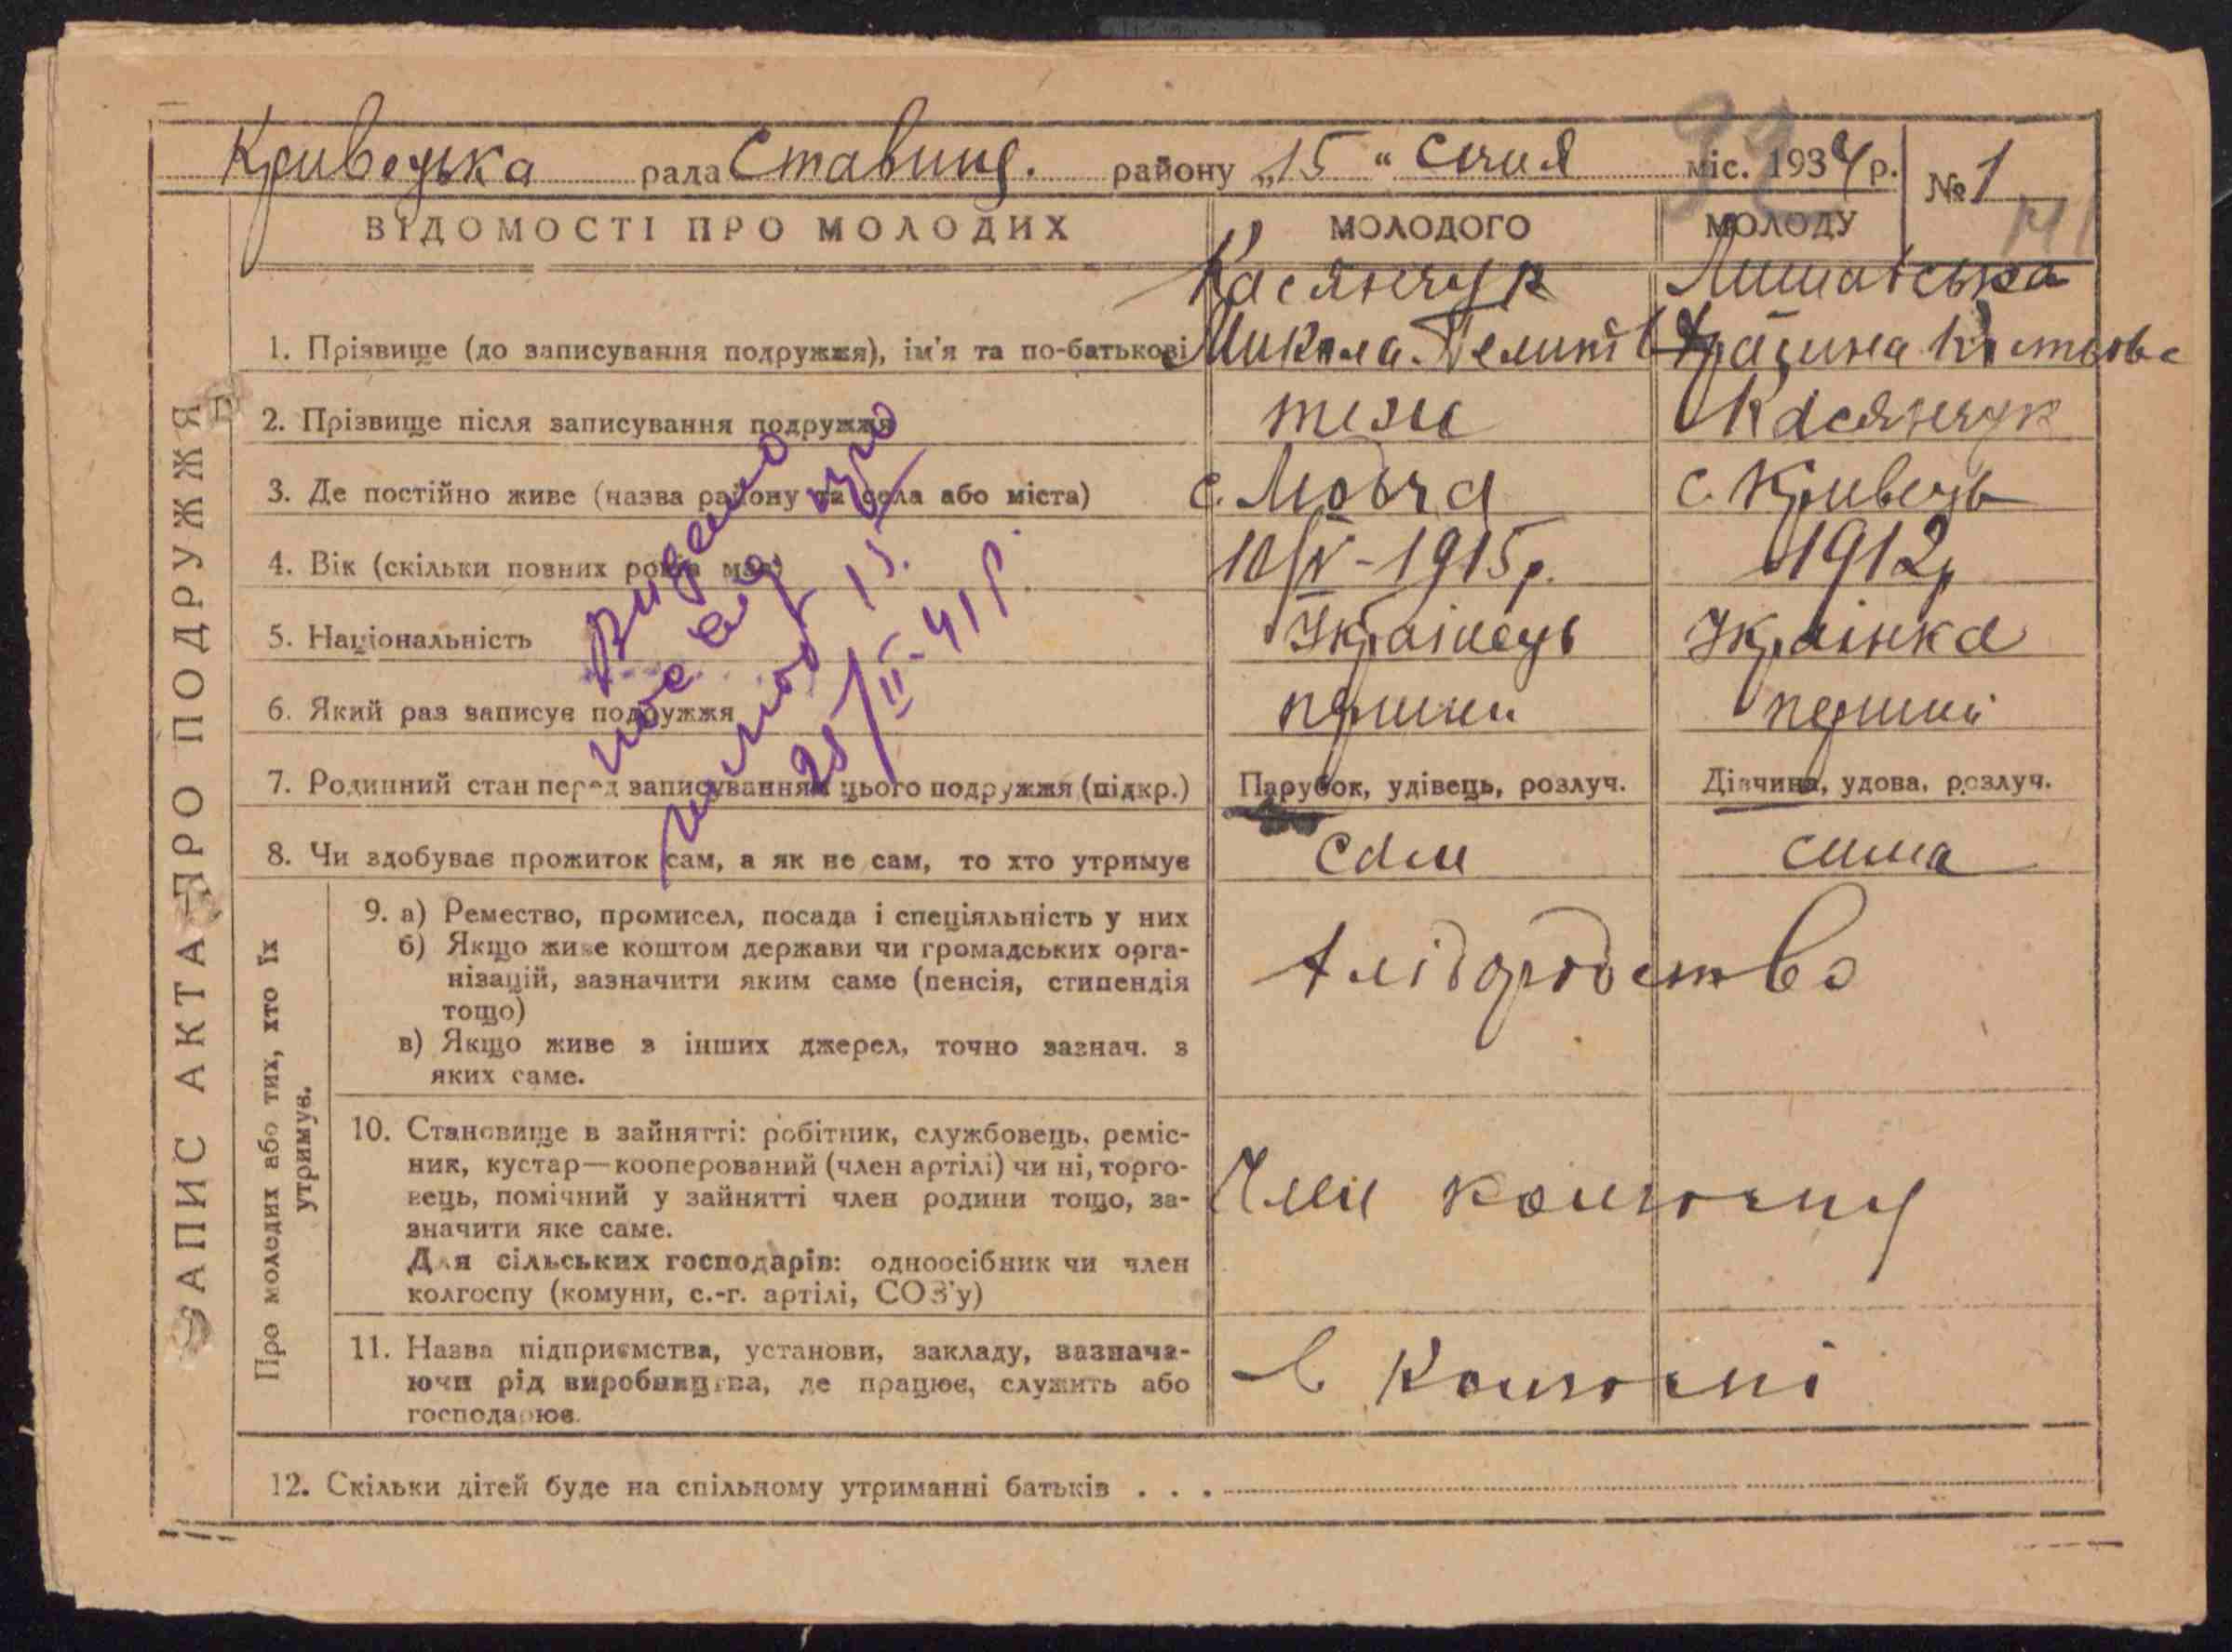 Кривецька рада Ставищ. району „15" Січня міс. 1934 р. № 1
ВІДОМОСТІ ПРО МОЛОДИХ МОЛОДОГО МОЛОДУ
ЗАПИС АКТА ПРО ПОДРУЖЖЯ
Касянчук
1. Прізвище (до записування подружжя), ім'я та по-батькові Микола
2. Прізвище після записування подружжя теж Касянчук
3. Де постійно живе (назва району та села або міста) с. Людвча с. Кривець
4. Вік (скільки повних років має) 10/IV - 1915 р. 1912 р
5. Національність Українець Українка
6. Який раз записує подружжя перший перший
7. Родинний стан перед записуванням цього подружжя (підкр.) Парубок, удівець, розлуч. Дівчина, удова, розлуч.
8. Чи здобуває прожиток сам, а як не сам, то хто утримує сам сама
Про молодих або тих, хто їх утримує.
9. а) Ремество, промисел, посада і спеціяльність у них
б) Якщо живе коштом держави чи громадських орга-
нізацій, зазначити яким саме (пенсія, стипендія
тощо)
в) Якщо живе з інших джерел, точно зазнач. з
яких саме.
Хліборобство
10. Становище в зайнятті: робітник, службовець, реміс-
ник, кустар—кооперований (член артілі) чи ні, торго-
вець, помічний у зайнятті член родини тощо, за-
значити яке саме.
Для сільських господарів: одноосібник чи член
колгоспу (комуни, с.-г. артілі, СОЗ'у)
Член колгоспу
11. Назва підприємства, установи, закладу, зазнача-
ючи рід виробництва, де працює, служить або
господарює.
в колгоспі
12. Скільки дітей буде на спільному утриманні батьків . . .
Видано
25/II-41 р.